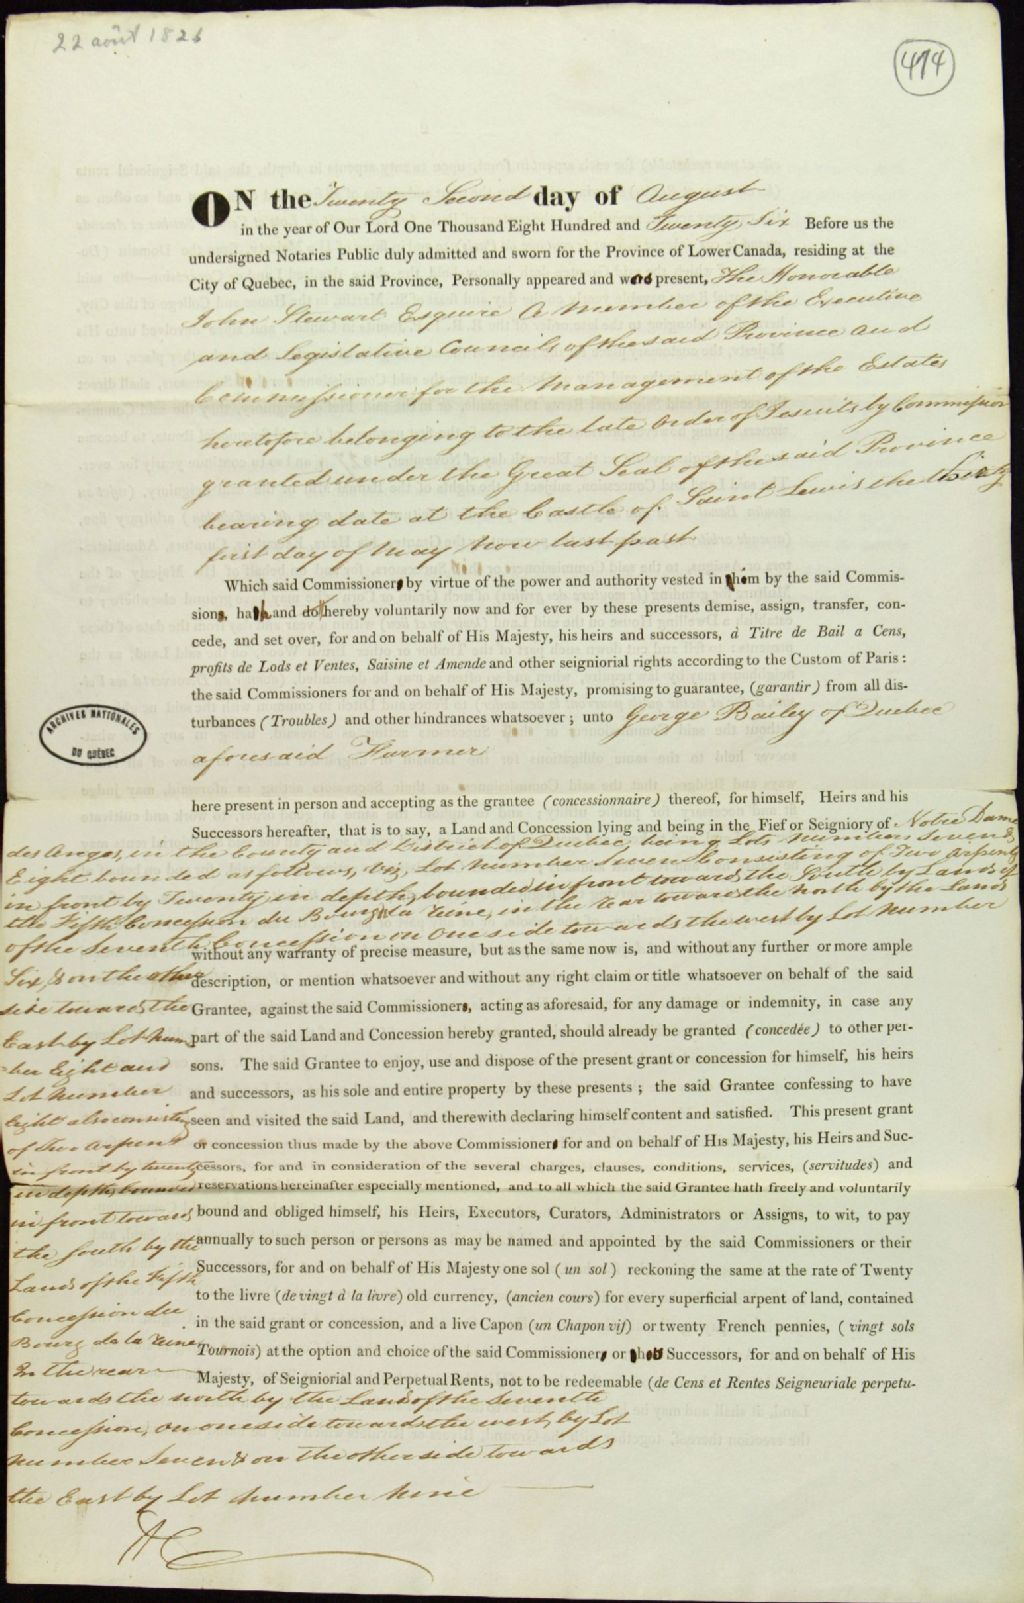 22 août 1826
474
ON the Twenty Second day of August
in the year of Our Lord One Thousand Eight Hundred and Twenty Six Before us the
undersigned Notaries Public duly admitted and sworn for the Province of Lower Canada, residing at the
City of Quebec, in the said Province, Personally appeared and was present, The Honorable
John Stewart Esquire A Member of the Executive
and Legislative Councils of the said Province and
Commissioner for the Management of the Estates
heretofore belonging to the late Order of Jesuits by Commission
granted under the Great Seal of the said Province
bearing date at the Castle of Saint Lewis the thirty
first day of May now last past
Which said Commissioner by virtue of the power and authority vested in him by the said Commis-
sion, hath and doth hereby voluntarily now and for ever by these presents demise, assign, transfer, con-
cede, and set over, for and on behalf of His Majesty, his heirs and successors, à Titre de Bail a Cens,
profits de Lods et Ventes, Saisine et Amende and other seigniorial rights according to the Custom of Paris :
the said Commissioners for and on behalf of His Majesty, promising to guarantee, (garantir) from all dis-
turbances (Troubles) and other hindrances whatsoever ; unto George Bailey of Quebec
aforesaid Farmer
ARCHIVES NATIONALES
DU QUÉBEC
here present in person and accepting as the grantee (concessionnaire) thereof, for himself, Heirs and his
Successors hereafter, that is to say, a Land and Concession lying and being in the Fief or Seigniory of Notre Dame
des Anges, in the County and District of Quebec, being Lots Number Seven &
Eight bounded as follows, Viz, Lot Number Seven Consisting of Two Arpents
in front by Twenty in depth, bounded in front towards the South by Lands of
the Fifth Concession du Bourg la Reine, in the rear towards the North by the Lands
of the Seventh Concession on One side towards the west by Lot Number
Six, & on the other
side towards the
East by Lot Num
-ber Eight and
Lot Number
Eight also consisting
of two Arpents
in front by twenty
in depth, bounded
in front towards
the South by the
Lands of the Fifth
Concession du
Bourg de la Reine
In the rear
towards the north by the Lands of the Seventh
Concession, on one side towards the west, by Lot
Number Seven & on the other side towards
the East by Lot Number Nine
without any warranty of precise measure, but as the same now is, and without any further or more ample
description, or mention whatsoever and without any right claim or title whatsoever on behalf of the said
Grantee, against the said Commissioner, acting as aforesaid, for any damage or indemnity, in case any
part of the said Land and Concession hereby granted, should already be granted (concedée) to other per-
sons. The said Grantee to enjoy, use and dispose of the present grant or concession for himself, his heirs
and successors, as his sole and entire property by these presents ; the said Grantee confessing to have
seen and visited the said Land, and therewith declaring himself content and satisfied. This present grant
or concession thus made by the above Commissioner for and on behalf of His Majesty, his Heirs and Suc-
cessors, for and in consideration of the several charges, clauses, conditions, services, (servitudes) and
reservations hereinafter especially mentioned, and to all which the said Grantee hath freely and voluntarily
bound and obliged himself, his Heirs, Executors, Curators, Administrators or Assigns, to wit, to pay
annually to such person or persons as may be named and appointed by the said Commissioners or their
Successors, for and on behalf of His Majesty one sol (un sol) reckoning the same at the rate of Twenty
to the livre (de vingt à la livre) old currency, (ancien cours) for every superficial arpent of land, contained
in the said grant or concession, and a live Capon (un Chapon vif) or twenty French pennies, (vingt sols
Tournois) at the option and choice of the said Commissioner or his Successors, for and on behalf of His
Majesty, of Seigniorial and Perpetual Rents, not to be redeemable (de Cens et Rentes Seigneuriale perpetu-